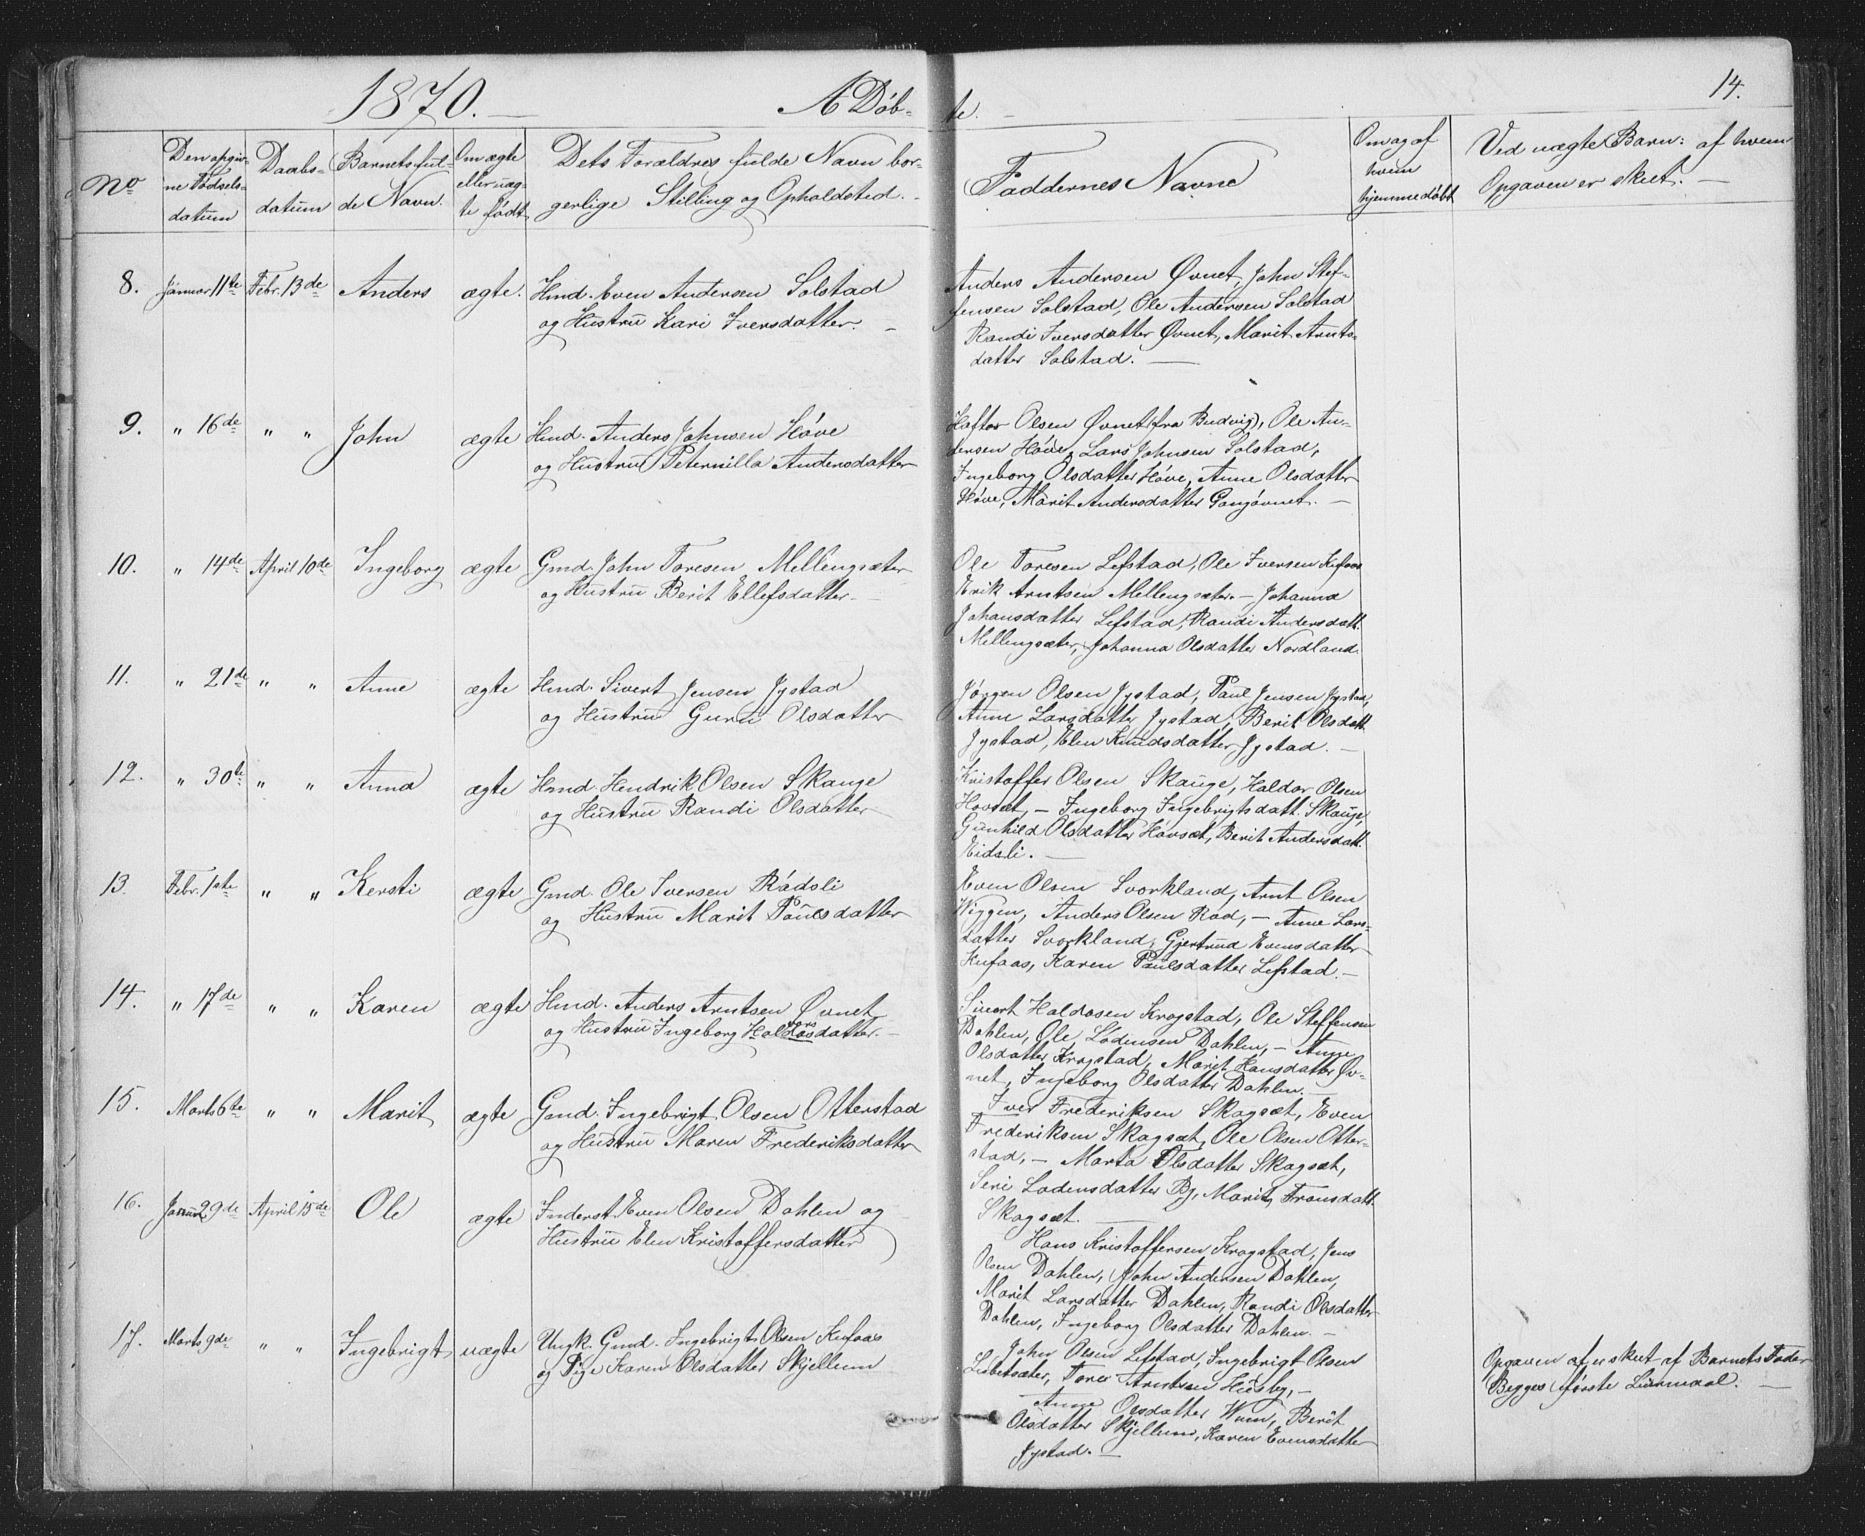 1870. — A Døb-
te. —
14.
No
Den opgiv-
ne Fødsels-
datum
Daabs-
datum
Barnets ful-
de Navn.
Om ægte
eller uæg-
te født
Dets Forældres fulde Navn bor-
gerlige Stilling og Opholdsted. -
Faddernes Navne
Om og af
hvem
hjemmedøbt
Ved uægte Barn: af hvem
Opgaven er skeet. —
8. Januar 11te Febr. 13de Anders ægte. Hmd. Even Andersen Solstad
og Hustru Kari Iversdatter. —
Anders Andersen Øvnet, John Stef-
fensen Solstad, Ole Andersen Solstad
Randi Iversdatter Øvnet, Marit Arnts-
datter Solstad. —
9. " 16de " " John ægte Hmd. Anders Johnsen Høve
og Hustru Peternilla Andersdatter
Haftor Olsen Øvnet (fra Budvig), Ole An-
dersen Høve, Lars Johnsen Solstad,
Ingeborg Olsdatter Høve, Anne Olsdatter
Høve, Marit Andersdatter Gangøvnet. —
10. " 14de April 10de Ingeborg ægte Gmd. John Toresen Mellengsæter
og Hustru Berit Ellefsdatter. —
Ole Toresen Lefstad, Ole Iversen Kufaas
Erik Arntsen Mellengsæter. — Johanna
Johansdatter Lefstad, Randi Andersdatt.
Mellengsæter, Johanna Olsdatter Nordland.
11. " 21de " " Anne ægte Hmd. Sivert Jensen Jystad
og Hustru Guru Olsdatter
Jørgen Olsen Jystad, Paul Jensen Jystad,
Anne Larsdatter Jystad, Berit Olsdatt.
Jystad, Elen Knudsdatter Jystad. —
12. " 30te " " Anna ægte Hmd. Hendrik Olsen Skauge
og Hustru Randi Olsdatter
Kristoffer Olsen Skauge, Haldor Olsen
Hovsæt, — Ingeborg Ingebrigtsdatt. Skauge,
Gunhild Olsdatter Hovsæt, Berit Andersdatt.
Eidsli. —
13. Febr. 1ste " " Kersti ægte Gmd. Ole Iversen Rádsli
og Hustru Marit Paulsdatter
Even Olsen Svorkland, Arnt Olsen
Wiggen, Anders Olsen Rød, — Anne Lars-
datter Svorkland, Gjertrud Evensdatter
Kufaas, Karen Paulsdatter Lefstad. —
14. " 17de " " Karen ægte Hmd. Anders Arntsen Øvnet
og Hustru Ingeborg Haldosdatter. —
Sivert Haldosen Krogstad, Ole Steffensen
Dahlen, Ole Lodensen Dahlen, — Anne
Olsdatter Krogstad, Marit Hansdatter Øv-
net, Ingeborg Olsdatter Dahlen. —
15. Marts 6te " " Marit ægte Gmd. Ingebrigt Olsen Otterstad
og Hustru Maren Frederiksdatter
Iver Frederiksen Skagsæt, Even
Frederiksen Skagsæt, Ole Olsen Otter-
stad, — Marta Olsdatter Skagsæt,
Seri Lodensdatter By, Marit Fransdatt.
Skagsæt. —
16. Januar 29de April 15de Ole ægte Inderst Even Olsen Dahlen og
Hustru Elen Kristoffersdatter
Hans Kristoffersen Krogstad, Jens
Olsen Dahlen, John Andersen Dahlen,
Marit Larsdatter Dahlen, Randi Olsdatter
Dahlen, Ingeborg Olsdatter Dahlen. —
17. Marts 9de " " Ingebrigt uægte Ungk. Gmd. Ingebrigt Olsen Kufaas
og Pige Karen Olsdatter Skjellum
John Olsen Lefstad, Ingebrigt Olsen
Lisbetsæter, Tore Arntsen Husby, —
Anne Olsdatter Wum, Berit
Olsdatter Skjellum, Karen Evensdatter
Jystad. —
Opgaven af er skeet af Barnets Fader
Begges første Leiermaal. —